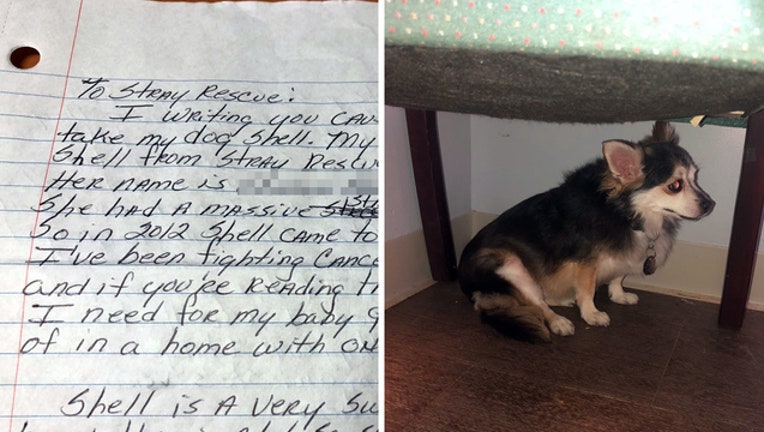 To Stray Rescue:
I writing you cau
take my dog Shell. My
Shell from Stray Rescu
Her name is
She had a massive
So in 2012 Shell came to
I've been fighting Cance
and if you're Reading t
I need for my baby g
of in a home with on
Shell is a very su